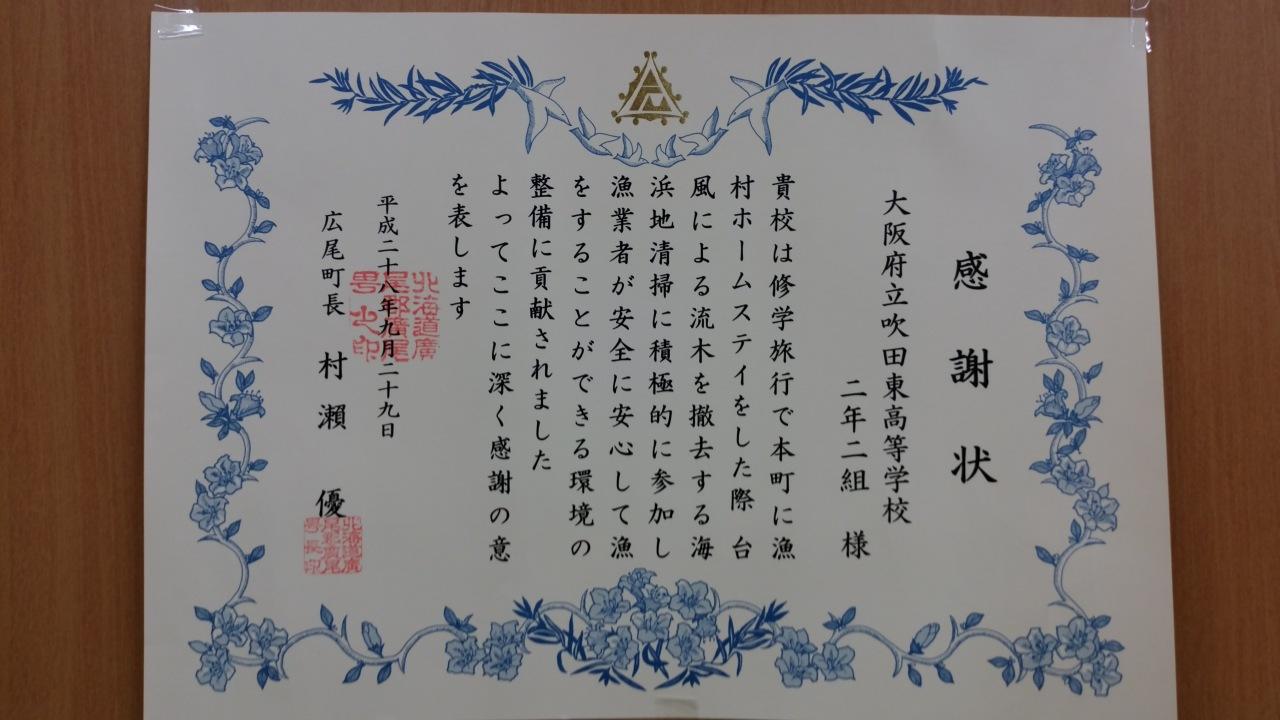 感謝状
大阪府立吹田東高等学校
二年二組 様
貴校は修学旅行で本町に漁
村ホームステイをした際 台
風による流木を撤去する海
浜地清掃に積極的に参加し
漁業者が安全に安心して漁
をすることができる環境の
整備に貢献されました
よってここに深く感謝の意
を表します
平成二十八年九月二十九日
北海道廣
尾郡廣尾
町之印
広尾町長 村瀬 優
北海道廣
尾郡廣尾
町長印